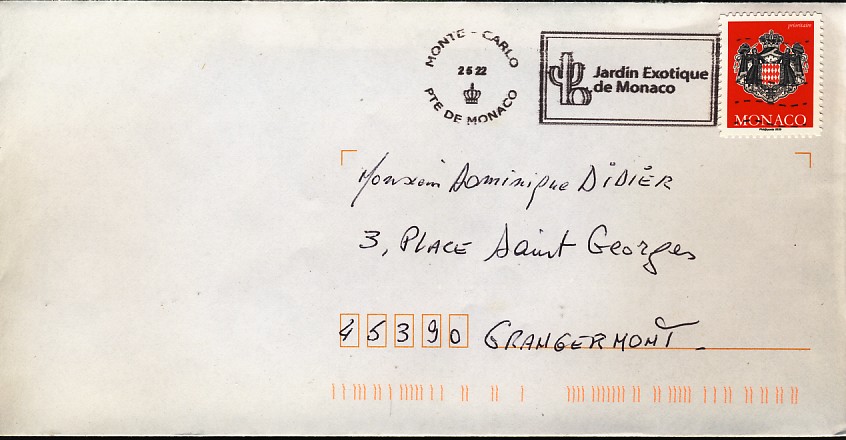 MONTE - CARLO
2 5 22
PTE DE MONACO
Jardin Exotique
de Monaco
prioritaire
MONACO
Monsieur Dominique DIDIER
3, PLACE Saint Georges
45390 GRANGERMONT